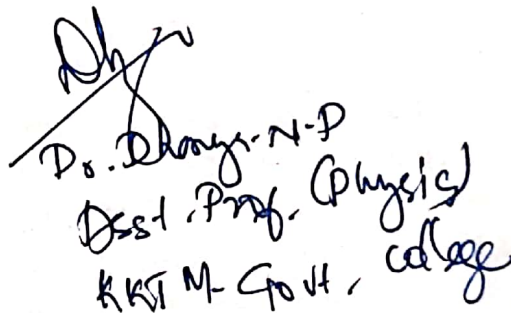 Dr. Dhanya. N. P
Asst. Prof. (Physics)
KKTM Govt. College